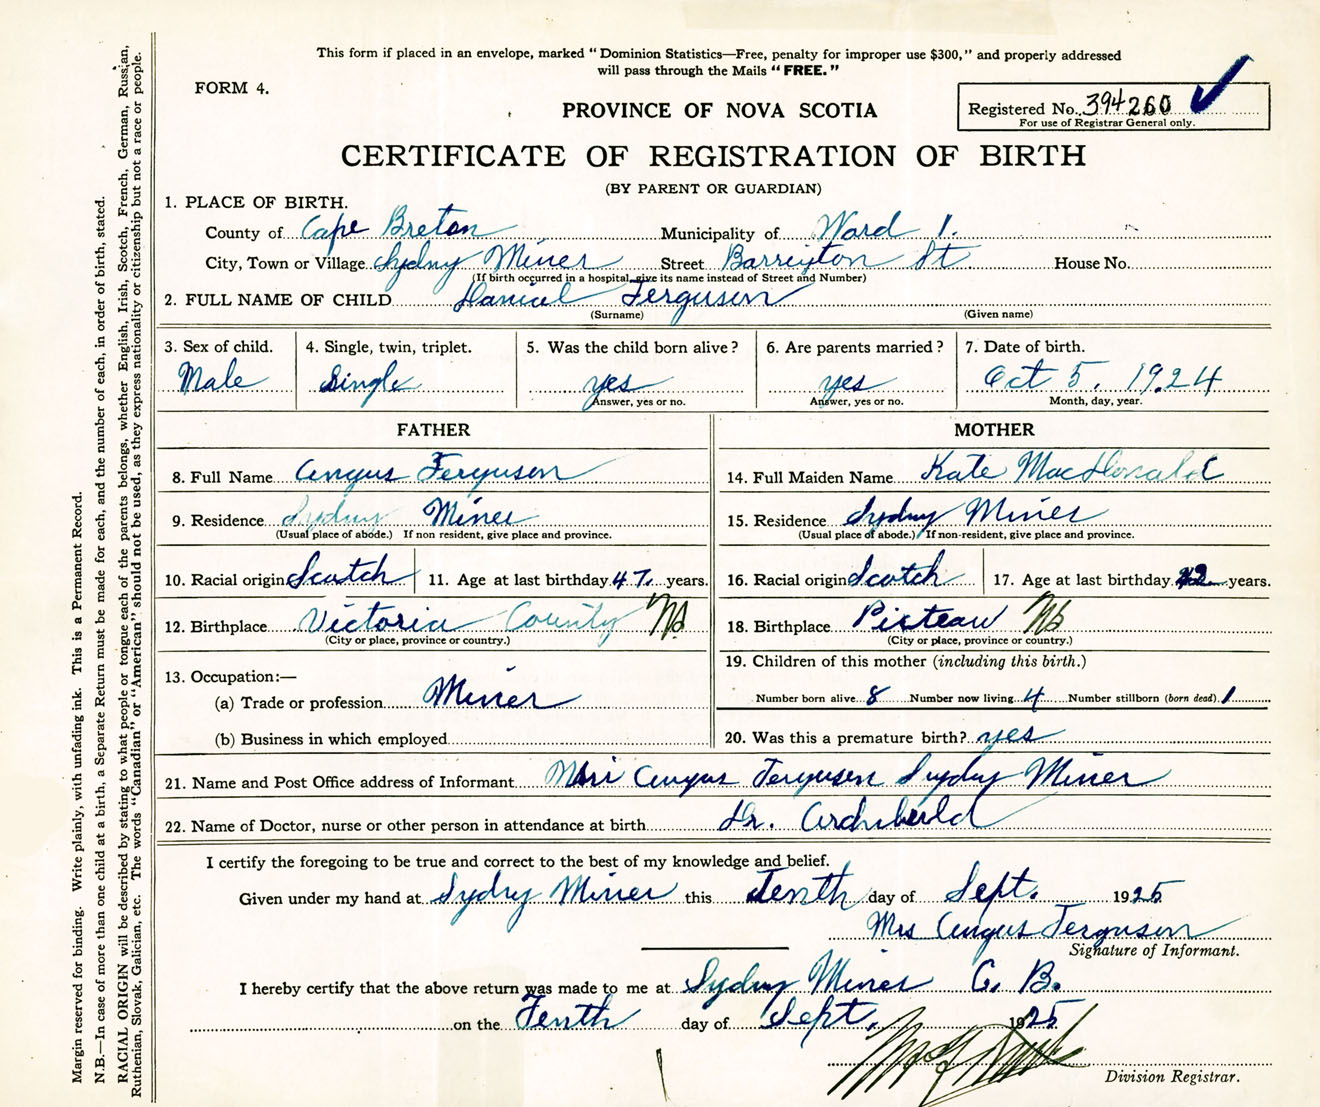 This form if placed in an envelope, marked "Dominion Statistics—Free, penalty for improper use $300," and properly addressed
will pass through the Mails "FREE."
FORM 4.
PROVINCE OF NOVA SCOTIA
Registered No. 394260
For use of Registrar General only.
CERTIFICATE OF REGISTRATION OF BIRTH
(BY PARENT OR GUARDIAN)
1. PLACE OF BIRTH.
County of Cape Breton Municipality of Ward 1.
City, Town or Village Sydny Mines Street Barrington St. House No.
(If birth occurred in a hospital, give its name instead of Street and Number)
2. FULL NAME OF CHILD Daniel Ferguson
(Surname) (Given name)
3. Sex of child. 4. Single, twin, triplet. 5. Was the child born alive? 6. Are parents married? 7. Date of birth.
Male Single yes yes Oct 5, 1924
Answer, yes or no. Answer, yes or no. Month, day, year.
FATHER MOTHER
8. Full Name Angus Ferguson 14. Full Maiden Name Kate MacDonald
9. Residence Sydny Mines 15. Residence Sydny Mines
(Usual place of abode.) If non resident, give place and province. (Usual place of abode.) If non-resident, give place and province.
10. Racial origin Scotch 11. Age at last birthday 47 years. 16. Racial origin Scotch 17. Age at last birthday years.
12. Birthplace Victoria County NS 18. Birthplace Picteau NS
(City or place, province or country.) (City or place, province or country.)
13. Occupation:— 19. Children of this mother (including this birth.)
(a) Trade or profession Miner Number born alive 8 Number now living 4 Number stillborn (born dead) 1
(b) Business in which employed 20. Was this a premature birth? yes
21. Name and Post Office address of Informant Mrs Angus Ferguson Sydny Mines
22. Name of Doctor, nurse or other person in attendance at birth Dr. Archibald
I certify the foregoing to be true and correct to the best of my knowledge and belief.
Given under my hand at Sydny Mines this Tenth day of Sept. 1925
Mrs Angus Ferguson
Signature of Informant.
I hereby certify that the above return was made to me at Sydny Mines C. B.
on the Tenth day of Sept. 1925
Division Registrar.
Margin reserved for binding. Write plainly, with unfading ink. This is a Permanent Record.
N.B.—In case of more than one child at a birth, a Separate Return must be made for each, and the number of each, in order of birth, stated.
RACIAL ORIGIN will be described by stating to what people or tongue each of the parents belongs, whether English, Irish, Scotch, French, German, Russian,
Ruthenian, Slovak, Galician, etc. The words "Canadian" or "American" should not be used, as they express nationality or citizenship but not a race or people.